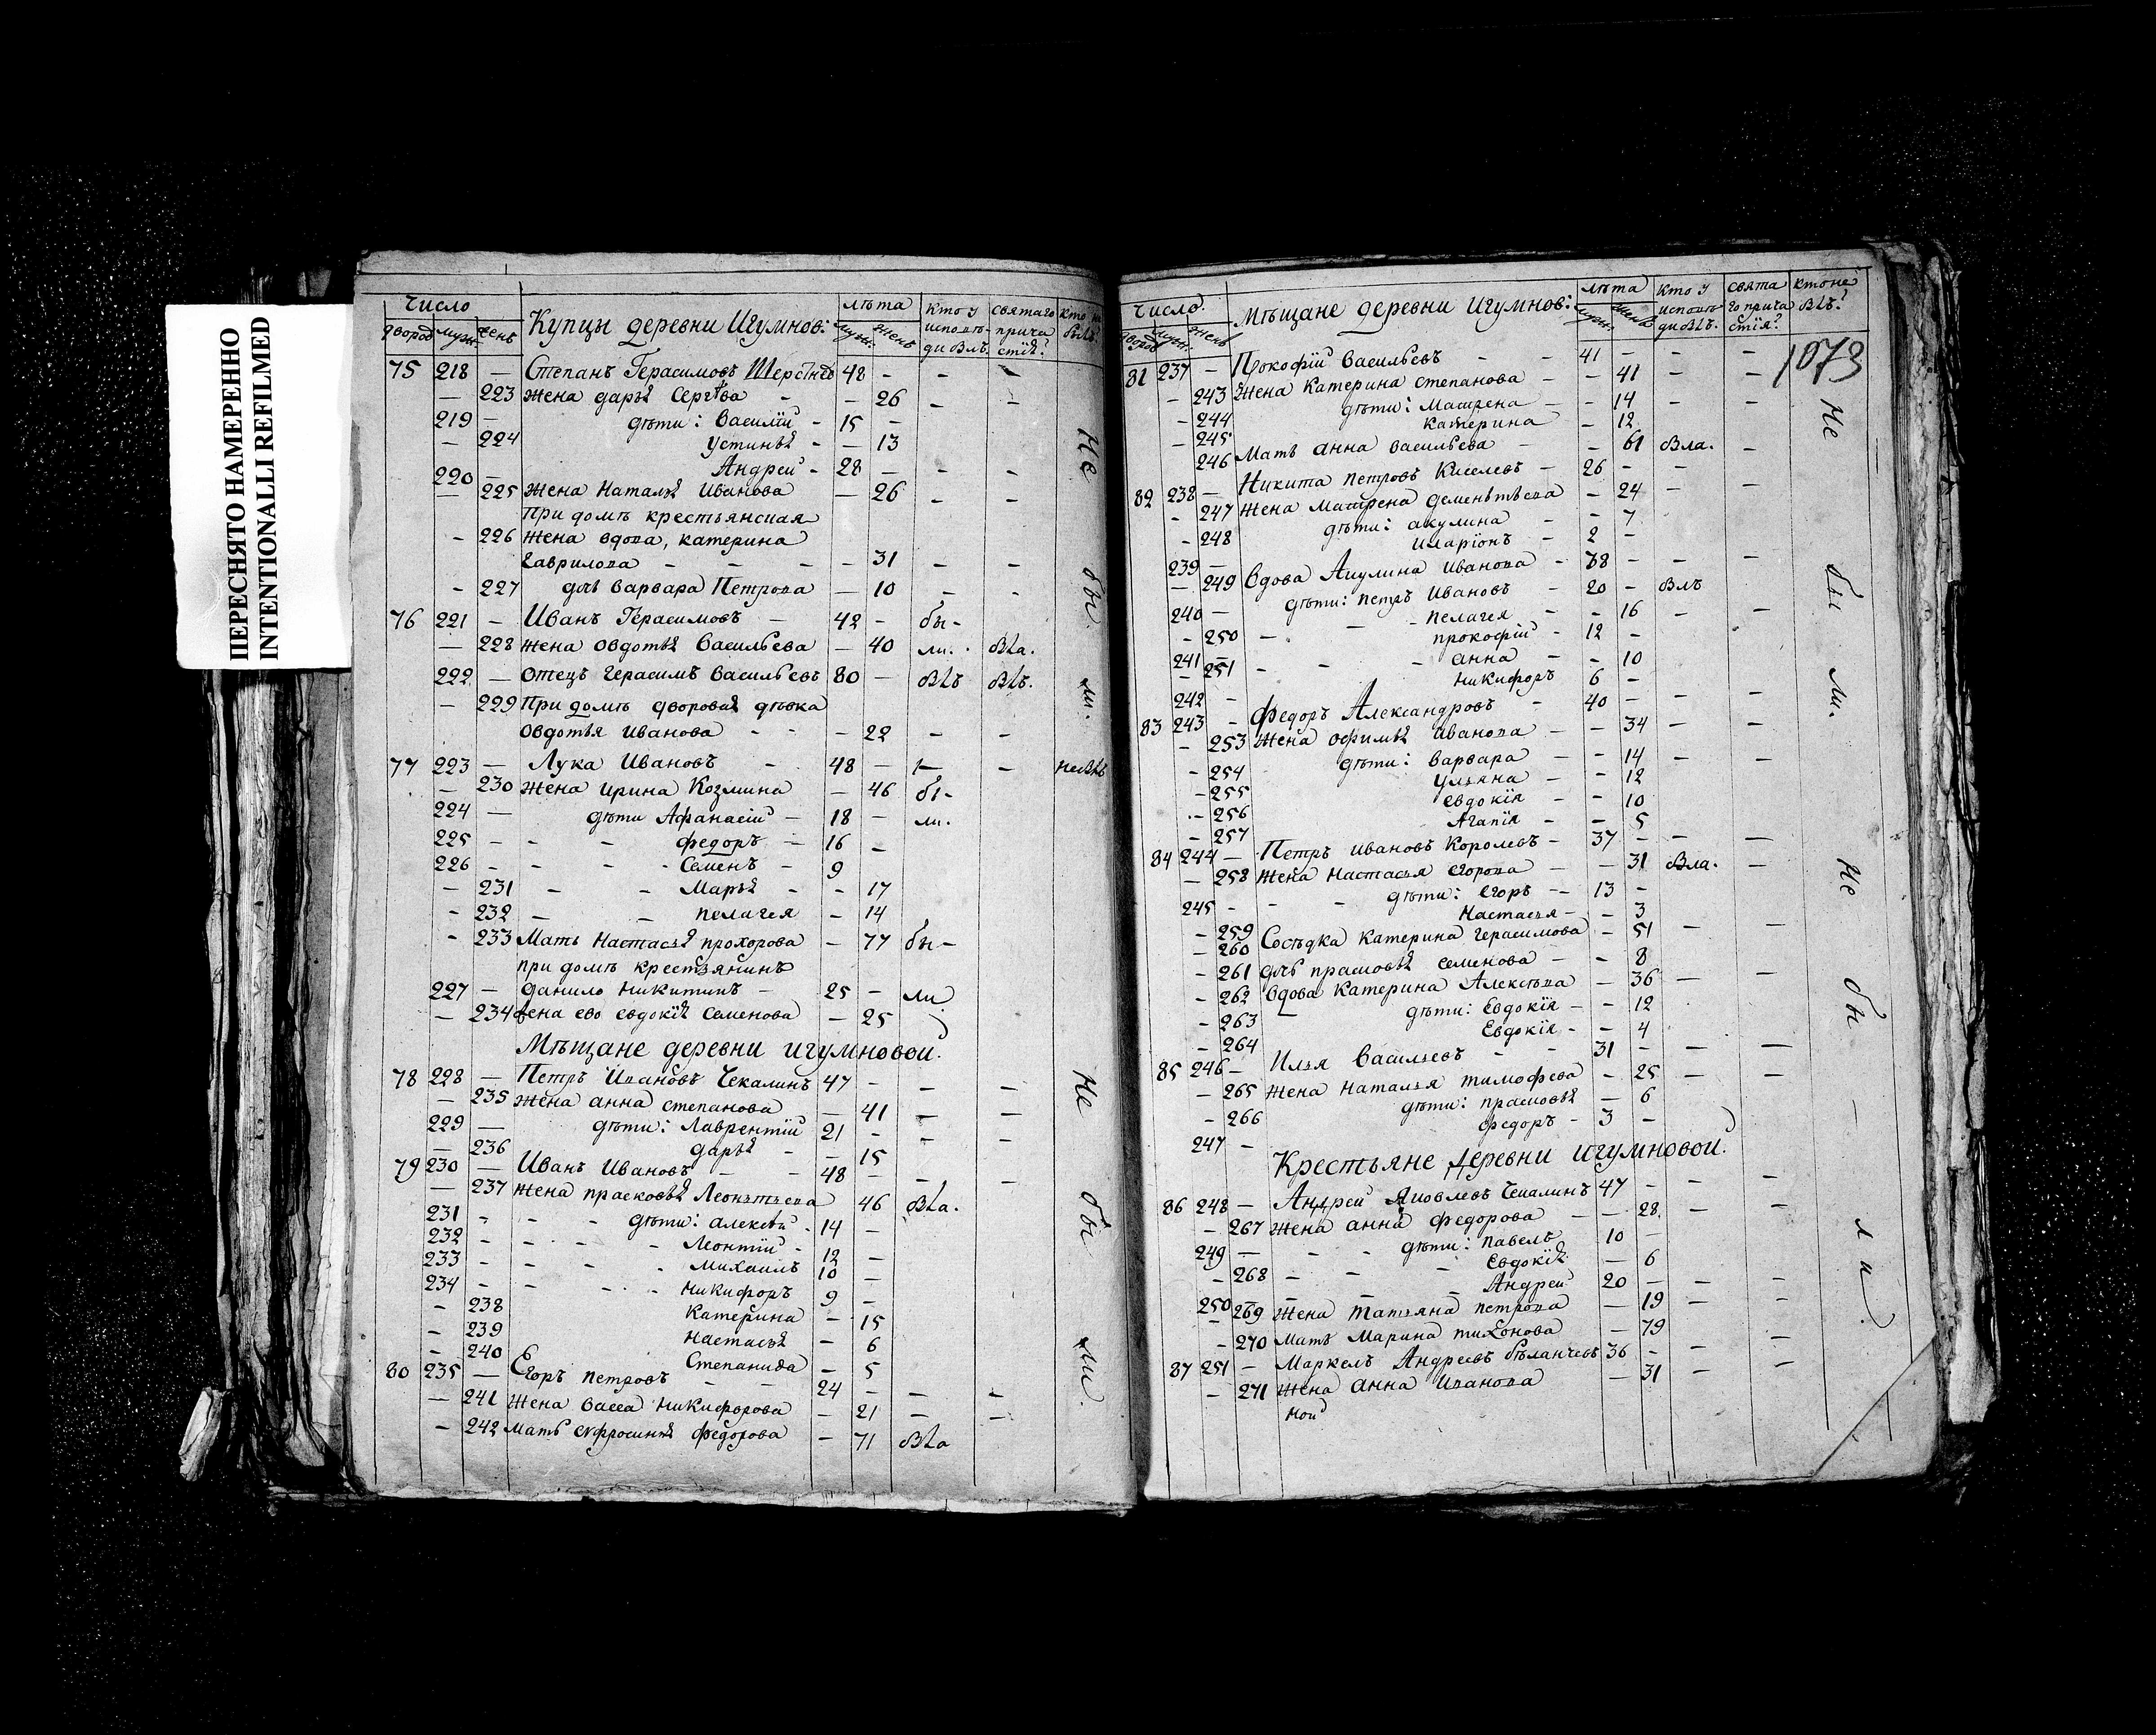 ПЕРЕСНЯТО НАМЕРЕННО
INTENTIONALLI REFILMED
Число Купцы деревни Игумнов: лѣта кто у святаго кто не
дворов муж. женъ муж. женъ исповѣди былъ. причастія? былъ.
75 218 — Степанъ Герасимовъ 48 - - -
— 223 жена дарья Сергѣва - — 26 - -
219 — дѣти: Василій - 15 -
— 224 Устинья - — 13
220 — Андрей - 28 - - -
— 225 жена Наталья Иванова — 26 - -
При домѣ крестьянская
- 226 жена вдова, катерина
Гаврилова - - - - 31 - -
- 227 дчь варвара Петрова — 10 - -
76 221 — Иванъ Герасимовъ — 42 - бы-
— 228 жена Овдотья Васильева — 40 ли. Была.
222 — отецъ Герасимъ Васильевъ 80 — Былъ Былъ.
— 229 При домѣ дворовая дѣвка
Овдотья Иванова - - - 22 - -
77 223 — Лука Ивановъ - 48 - - - не Былъ
— 230 жена ирина Козмина — 46 бы-
224 — дѣти Афанасій — 18 — ли.
225 - - - федоръ — 16 -
226 - - - - Семенъ - 9
- 231 - - Марья - - 17
- 232 - - пелагея - 14
- 233 Мать Настасья прохорова — 77 бы-
при домѣ крестьянинъ
227 — данило Никитинъ — 25 — ли
— 234 жена ево евдокія Семенова — 25
Мѣщане деревни игумновой.
78 228 — Петръ Ивановъ Чекалинъ 47 - - -
— 235 жена анна степанова — 41 - -
229 — дѣти: Лаврентій 21 - - -
— 236 дарья - - 15
79 230 — Иванъ Ивановъ - - 48 - - -
— 237 жена прасковья Леонтьева 46 Была.
231 - - - дѣти: алексѣй - 14 -
232 - - - - Леонтій - 12 -
233 - - - - михаилъ 10 -
234 - - - - никифоръ 9 -
- 238 катерина - 15
- 239 настасья - 6
- 240 Степанида - 5
80 235 — Егоръ петровъ - - 24 - - -
— 241 жена васса никифорова - 21 - -
- 242 мать ефросинья федорова - 71 Была
Не
бы
ли.
Не
бы
ли.
Число. Мѣщане деревни Игумнов: лѣта кто у свята кто не
дворов муж. женъ муж. женъ исповѣди Былъ. го причастія? Былъ?
1073
81 237 - Покофій Васильевъ - - 41 - - -
- 243 жена Катерина степанова - - 41 - -
- 244 дѣти: Матрена - - 14 - -
- 245 катерина - 12
246 мать анна васильева - - 61 Была. -
82 238 — Никита петровъ Киселевъ - 26 - -
- 247 жена Матрена дементьева - 24 - -
- 248 дѣти: акулина - - 7
239 — иларіонъ - 2 -
— 249 Вдова Акулина Иванова - 38 - - -
240 — дѣти: петръ Ивановъ - 20 - Былъ
- 250 - - - пелагея - - 16 - -
241 - прокофій - 12 -
- 251 - - - анна - - 10
242 - никифоръ 6 -
83 243 - федоръ Александровъ - 40 - - -
- 253 жена офимья Иванова - - 34 - -
- 254 дѣти: варвара - - 14 - -
- 255 ульяна - - 12
- 256 евдокія - - 10
- 257 Агапія - - 5
84 244 — Петръ ивановъ Королевъ - 37 - - —
— 258 жена настасья егорова — 31 Была. -
245 - - - дѣти: егоръ -- 13 -
- 259 Настасья - - 3
- 260 Сосѣдка катерина герасимова - 51 - -
- 261 дчь прасковья семенова - - 8
- 262 вдова катерина Алексѣева - 36 - -
- 263 дѣти: Евдокія - - 12
- 264 Евдокія - - 4
85 246 - Илья Васильевъ - - 31 - - —
- 265 жена наталья тимофева - 25 - -
- 266 дѣти: прасковья - 6
247 - федоръ - 3 -
Крестьяне деревни игумновой.
86 248 — Андрей Яковлевъ Чекалинъ 47 - - -
- 267 жена анна федорова - - 28. - -
249 — - - дѣти: павелъ 10 -
- 268 - - - Евдокія - 6
250 — - - - Андрей 20 - - -
- 269 жена татьяна петрова — 19 - -
- 270 мать марина тихонова — 79 -
87 251 - Маркелъ Андреевъ 36 - - -
- 271 жена анна Иванова - 31 - -
ной
Не
бы
ли.
Не
бы
ли.